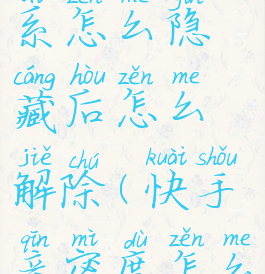 系怎么隐
cáng hòu zěn me
藏后怎么
jiě chú kuài shǒu
解除(快手
qīn mì dù zěn me
亲密度怎么